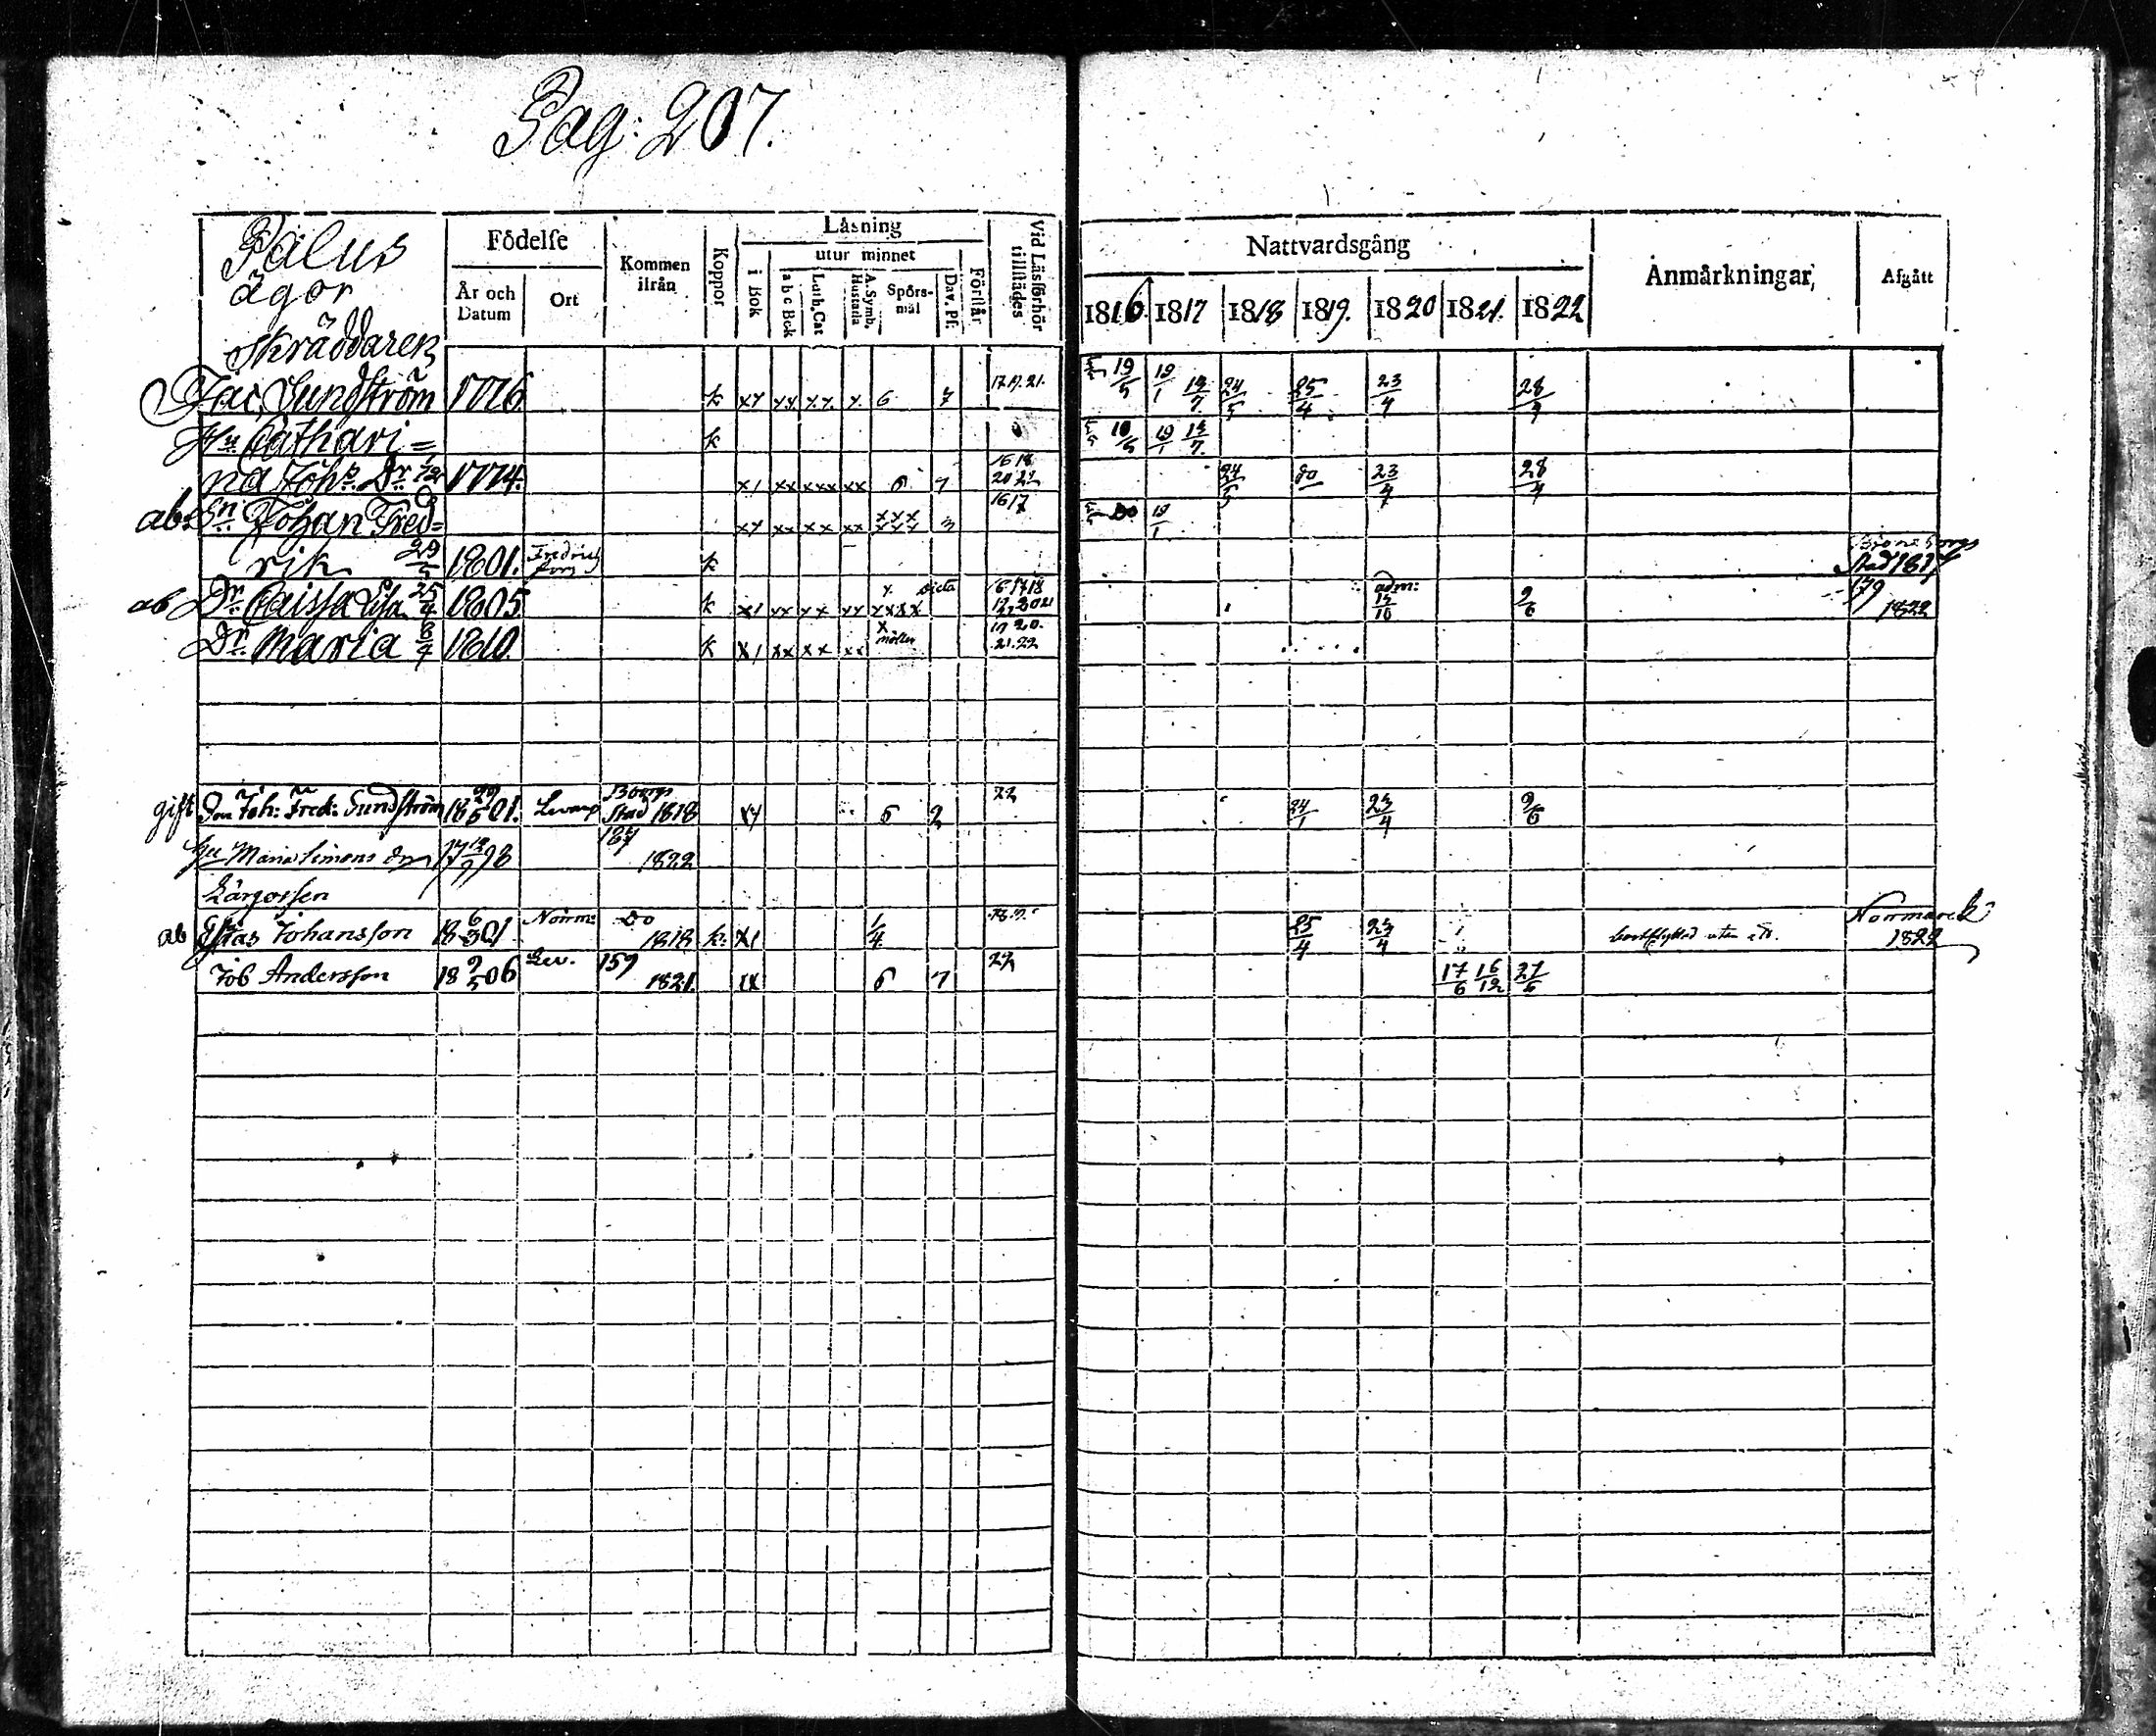 Pag: 207.
Pålus
ägor
Födelse
År och Datum
Ort
Kommen ifrån
Koppor
Läsning
i Bok
utur minnet
a b c Bok
Luth. Cat
A. Symb. Hustafla
Spörsmål
Dav. Pf.
Förstår
Vid Läsförhör tillstädes
Nattvardsgång
1816 1817 1818 1819. 1820 1821. 1822
Anmärkningar,
Afgått
Skräddaren
Jac. Sundström 1776. k xx xx x.x. x. 6 7 17.19.21. 19/5 19/1 13/7 24/5 25/4 23/4 28/4
Hu. Cathari= k 19/5 19/1 13/7
na Joh. Dr. 1774. x1 xx xxx xx 6 7 16 18 20 21 24/5 do 23/4 28/4
ab. Sn. Johan Fred= xx xx xx xx xxx xxx 3 16 17 Do 19/1
rik 29/5 1801. k Björneborgs Stad 1817
ab Dr. Caissa Lisa 25/4 1805 k x1 xx xx xx x xxxx dicta 16 17 18 adm: 15/10 9/6 179 1822
Dr. Maria 8/4 1810. k x1 xx xx xx x 19 20. 21.22
gift Son Joh: Fred: Sundström 18 29/5 01. B:borgs Stad 1818 xx 6 2 22 24/1 23/4 9/6
Hu Maria Simons dr 17 98 1822
Lärgossen
ab Elias Johansson 18 6/3 01 Norrm: Do 1818 k. x1 1/4 25/4 23/4 Norrmark 1822
Job Andersson 18 9/5 06 Lev. 159 1821. xx 6 7 22 17/6 16/12 27/5